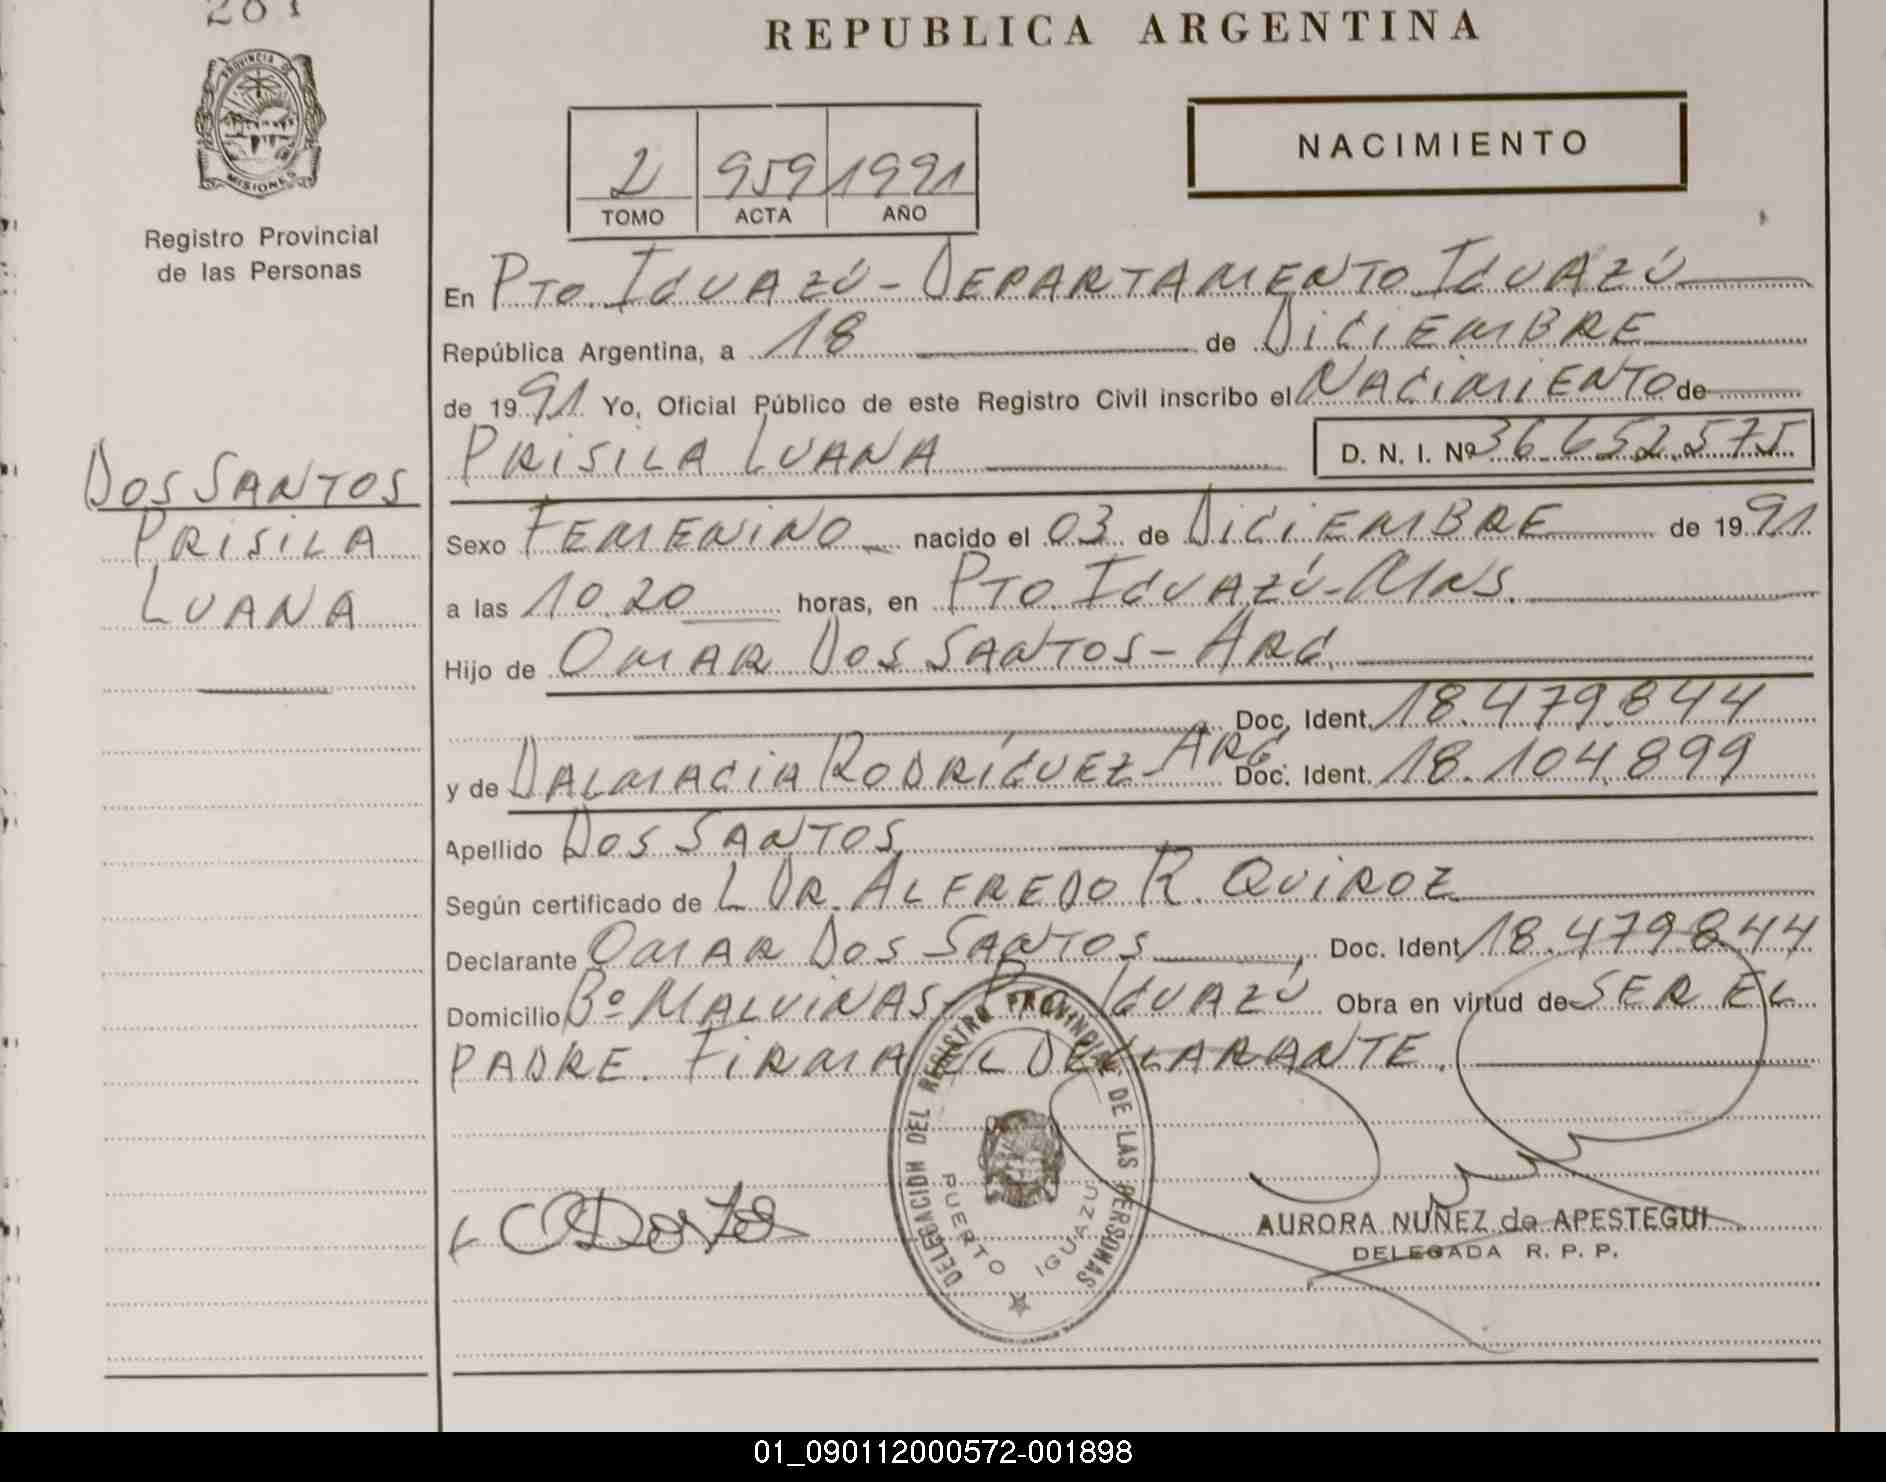 REPUBLICA ARGENTINA
PROVINCIA DE
MISIONES
Registro Provincial
de las Personas
2 959 1991
TOMO ACTA AÑO
NACIMIENTO
En PTO. IGUAZÚ - DEPARTAMENTO IGUAZÚ
República Argentina, a 18 de DICIEMBRE
de 1991 Yo, Oficial Público de este Registro Civil inscribo el NACIMIENTO de
PRISILA LUANA D. N. I. Nº 36.652.575
DOS SANTOS
PRISILA
LUANA
Sexo FEMENINO nacido el 03 de DICIEMBRE de 1991
a las 10.20 horas, en PTO. IGUAZÚ - MNS.
Hijo de OMAR DOS SANTOS - ARG.
Doc. Ident. 18.479.844
y de DALMACIA RODRÍGUEZ - ARG. Doc. Ident. 18.104.899
Apellido DOS SANTOS
Según certificado de L DR. ALFREDO R. QUIROZ
Declarante OMAR DOS SANTOS, Doc. Ident 18.479844
Domicilio Bº MALVINAS - PTO. IGUAZÚ Obra en virtud de SER EL
PADRE. FIRMA EL DECLARANTE.
DELEGACION DEL REGISTRO PROVINCIAL DE LAS PERSONAS
PUERTO IGUAZU
AURORA NUÑEZ de APESTEGUI
DELEGADA R. P. P.
01_090112000572-001898